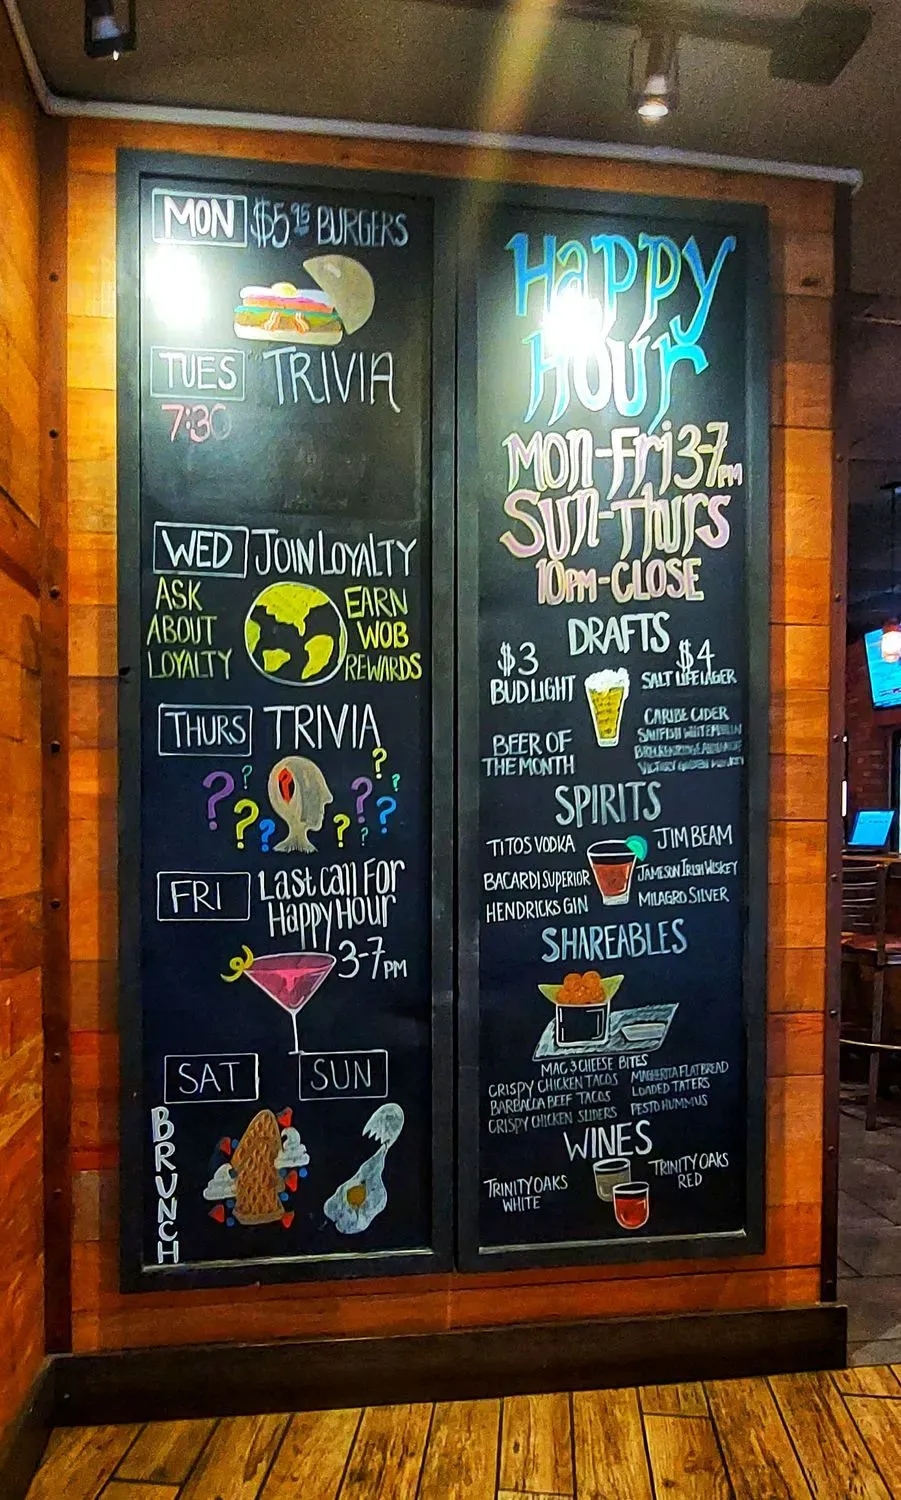 MON $5.95 BURGERS
TUES TRIVIA
7:30
WED JOIN LOYALTY
ASK
ABOUT
LOYALTY
EARN
WOB
REWARDS
THURS TRIVIA
? ? ? ? ? ? ? ? ? ?
FRI LAST CALL FOR
HAPPY HOUR
3-7PM
SAT SUN
BRUNCH
HaPPy
HOUr
MON-Fri 3-7PM
SUN-THURS
10PM-CLOSE
DRAFTS
$3
BUD LIGHT
$4
SALT LIFE LAGER
BEER OF
THE MONTH
CARIBE CIDER
SPIRITS
TITOS VODKA
BACARDI SUPERIOR
HENDRICKS GIN
JIM BEAM
JAMESON IRISH WISKEY
MILAGRO SILVER
SHAREABLES
MAC 3 CHEESE BITES
CRISPY CHICKEN TACOS
BARBACCA BEEF TACOS
CRISPY CHICKEN SLIDERS
FLATBREAD
LOADED TATERS
PESTO HUMMUS
WINES
TRINITY OAKS
WHITE
TRINITY OAKS
RED